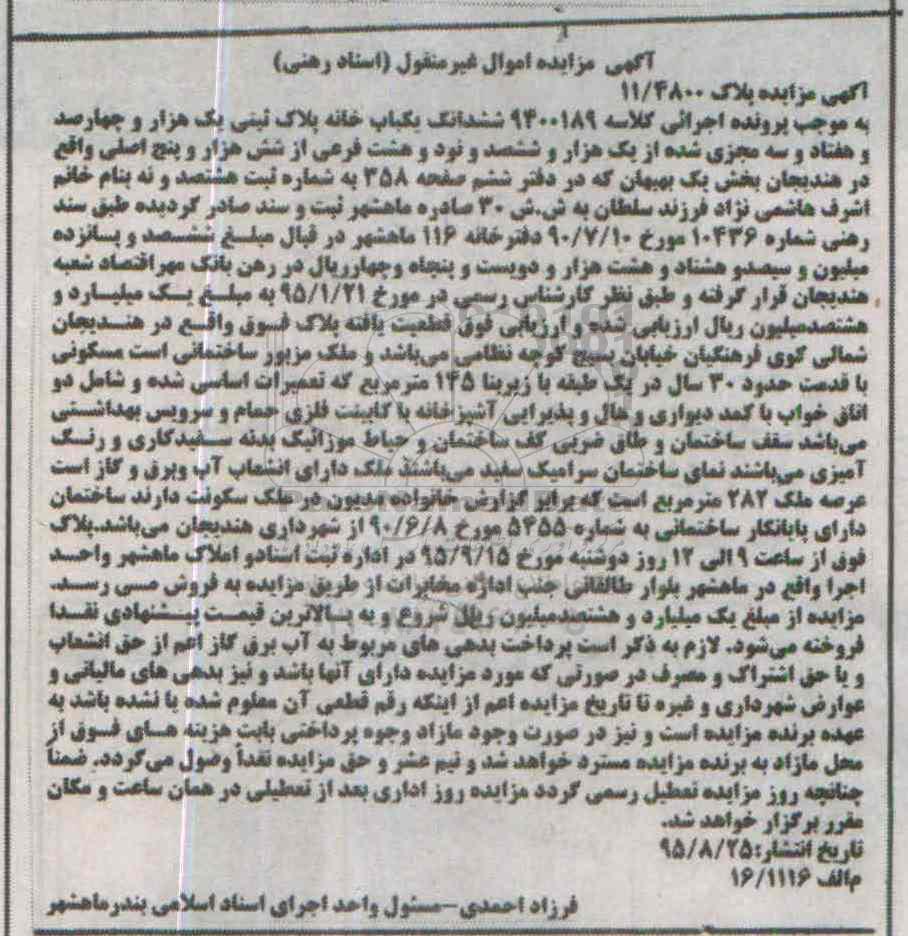 آگهی مزایده اموال غیر منقول (اسناد رهنی)
آگهی مزایده پلاک ۱۱/۴۸۰۰
به موجب پرونده اجرائی کلاسه ۹۴۰۰۱۸۹ ششدانگ یکباب خانه پلاک ثبتی یک هزار و چهارصد
و هفتاد و سه مجزی شده از یک هزار و ششصد و نود و هشت فرعی از شش هزار و پنج اصلی واقع
در هندیجان بخش یک بهبهان که در دفتر ششم صفحه ۳۵۸ به شماره ثبت هشتصد و نه بنام خانم
اشرف هاشمی نژاد فرزند سلطان به ش.ش ۳۰ صادره ماهشهر ثبت و سند صادر گردیده طبق سند
رهنی شماره ۱۰۴۳۶ مورخ ۹۰/۷/۱۰ دفترخانه ۱۱۶ ماهشهر در قبال مبلغ ششصد و پانزده
میلیون و سیصدو هشتاد و هشت هزار و دویست و پنجاه وچهارریال در رهن بانک مهراقتصاد شعبه
هندیجان قرار گرفته و طبق نظر کارشناس رسمی در مورخ ۹۵/۱/۲۱ به مبلغ یک میلیارد و
هشتصدمیلیون ریال ارزیابی شده و ارزیابی فوق قطعیت یافته پلاک فوق واقع در هندیجان
شمالی کوی فرهنگیان خیابان بسیج کوچه نظامی می‌باشد و ملک مزبور ساختمانی است مسکونی
با قدمت حدود ۳۰ سال در یک طبقه با زیربنا ۱۴۵ مترمربع که تعمیرات اساسی شده و شامل دو
اتاق خواب با کمد دیواری و هال و پذیرایی آشپزخانه با کابینت فلزی حمام و سرویس بهداشتی
می‌باشد سقف ساختمان و طاق ضربی کف ساختمان و حیاط موزائیک بدنه سفیدکاری و رنگ
آمیزی می‌باشند نمای ساختمان سرامیک سفید می‌باشند ملک دارای انشعاب آب وبرق و گاز است
عرصه ملک ۲۸۲ مترمربع است که برابر گزارش خانواده مدیون در ملک سکونت دارند ساختمان
دارای پایانکار ساختمانی به شماره ۵۴۵۵ مورخ ۹۰/۶/۸ از شهرداری هندیجان می‌باشد.پلاک
فوق از ساعت ۹ الی ۱۲ روز دوشنبه مورخ ۹۵/۹/۱۵ در اداره ثبت اسنادو املاک ماهشهر واحد
اجرا واقع در ماهشهر بلوار طالقانی جنب اداره مخابرات از طریق مزایده به فروش می رسد.
مزایده از مبلغ یک میلیارد و هشتصدمیلیون ریال شروع و به بالاترین قیمت پیشنهادی نقدا
فروخته می‌شود. لازم به ذکر است پرداخت بدهی های مربوط به آب برق گاز اعم از حق انشعاب
و یا حق اشتراک و مصرف در صورتی که مورد مزایده دارای آنها باشد و نیز بدهی های مالیاتی و
عوارض شهرداری و غیره تا تاریخ مزایده اعم از اینکه رقم قطعی آن معلوم شده یا نشده باشد به
عهده برنده مزایده است و نیز در صورت وجود مازاد وجوه پرداختی بابت هزینه های فوق از
محل مازاد به برنده مزایده مسترد خواهد شد و نیم عشر و حق مزایده نقداً وصول می‌گردد. ضمناً
چنانچه روز مزایده تعطیل رسمی گردد مزایده روز اداری بعد از تعطیلی در همان ساعت و مکان
مقرر برگزار خواهد شد.
تاریخ انتشار:۹۵/۸/۲۵
م‌الف ۱۶/۱۱۱۶
فرزاد احمدی-مسئول واحد اجرای اسناد اسلامی بندرماهشهر